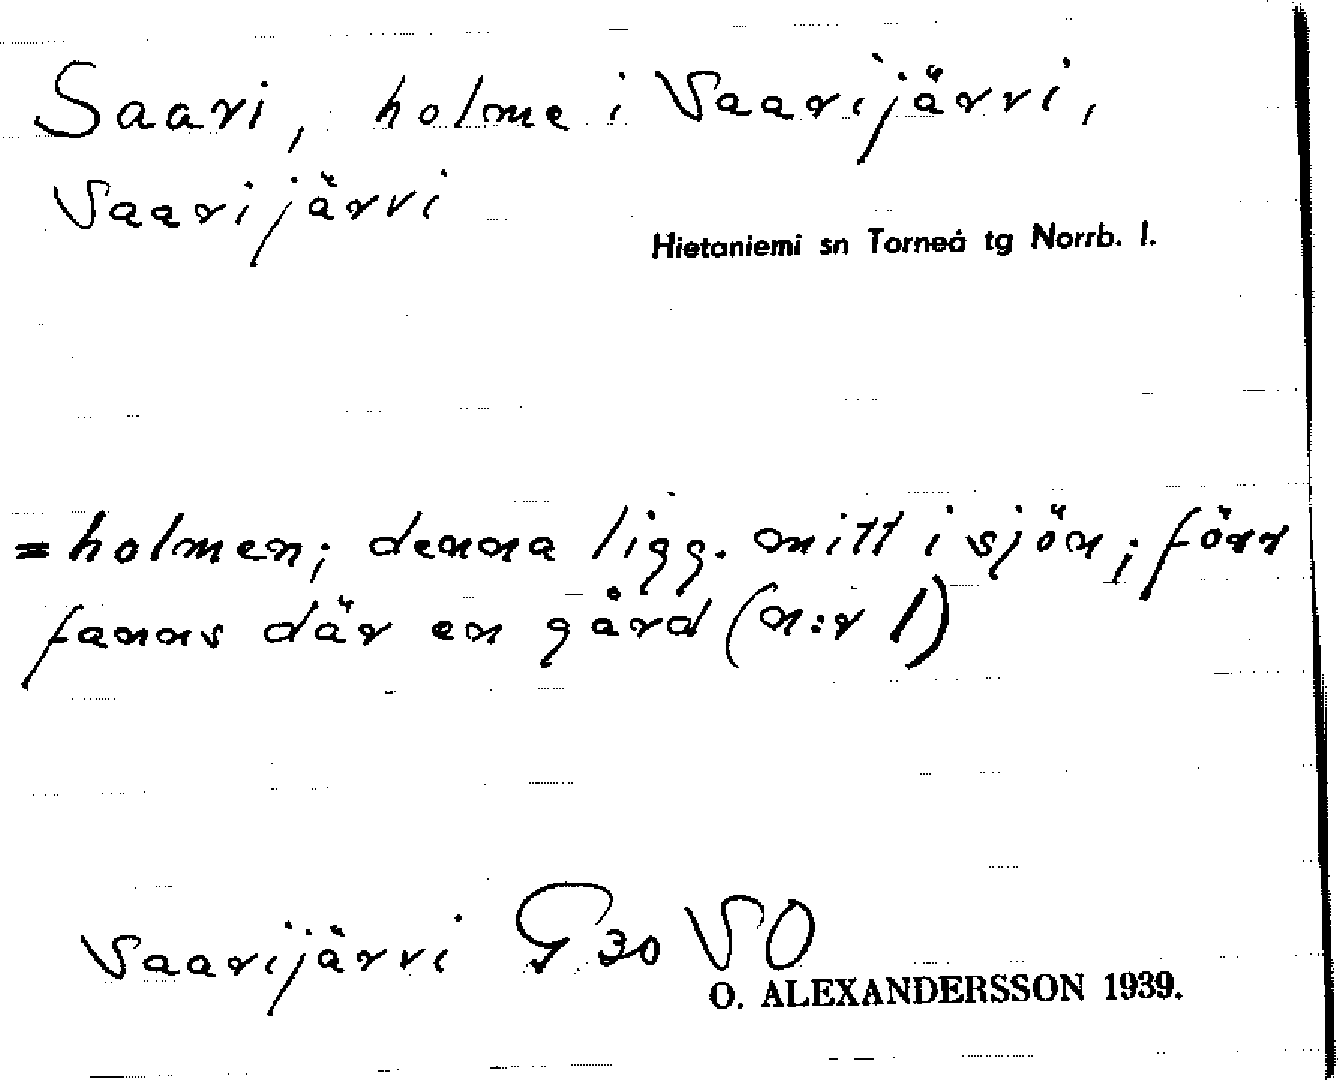 Saari, holme i Vaarijärvi,
Vaarijärvi
Hietaniemi sn Torneå tg Norrb. l.
= holmen; denna ligg. mitt i sjön; förr
fanns där en gård (n:r 1)
Vaarijärvi G 30 VO
O. ALEXANDERSSON 1939.